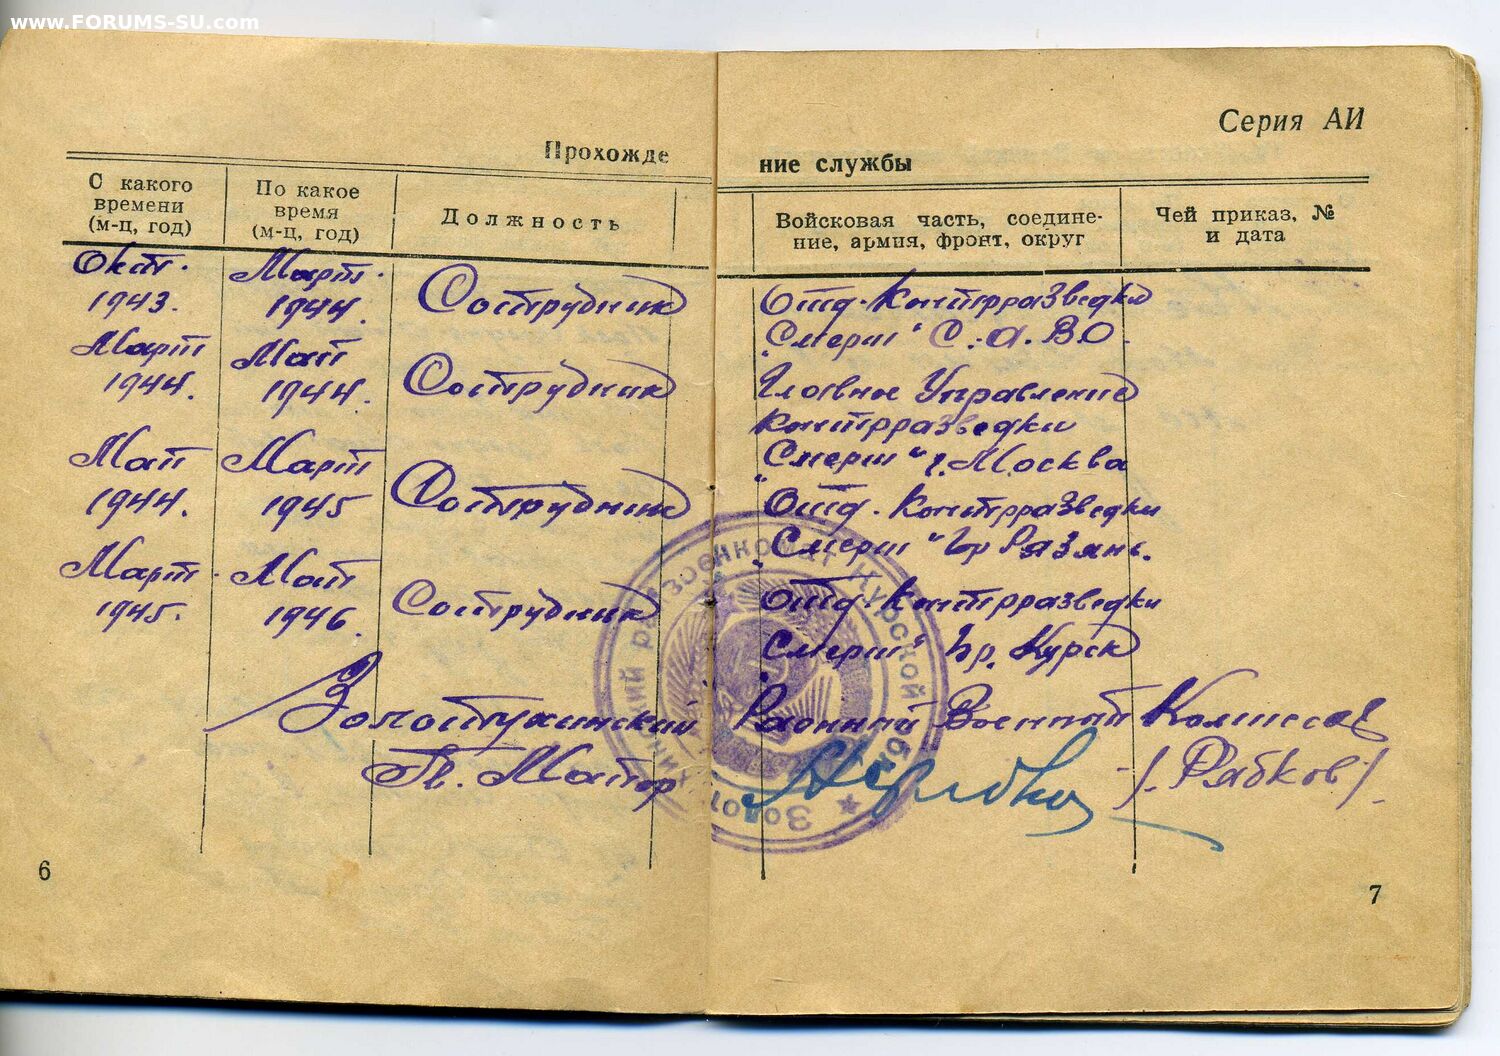 www.FORUMS-SU.com
Серия АИ
Прохожде
ние службы
С какого времени (м-ц, год)
По какое время (м-ц, год)
Должность
Войсковая часть, соедине-
ние, армия, фронт, округ
Чей приказ, №
и дата
Окт. 1943.
Март. 1944.
Сотрудник
Отд. Контрразведки
"Смерш" С.А.ВО.
Март 1944.
Май 1944.
Сотрудник
Главное Управление
контрразведки
"Смерш" г. Москва
Май 1944.
Март 1945
Сотрудник
Отд. Контрразведки
"Смерш" гор Рязань.
Март. 1945.
Май 1946.
Сотрудник
Отд. Контрразведки
"Смерш" гор. Курск
Золотухинский Районный Военный Комиссар
Гв. Майор
/. Рябков /.
райвоенкомат Курской обл.
6
7